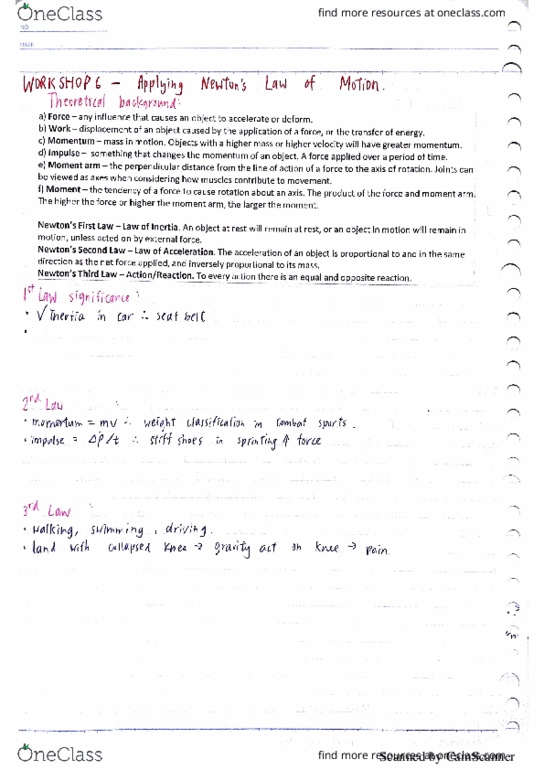 OneClass
find more resources at oneclass.com
NO
DATE
WORKSHOP 6 – Applying Newton's Law of Motion.
Theoretical background:
a) Force – any influence that causes an object to accelerate or deform.
b) Work – displacement of an object caused by the application of a force, or the transfer of energy.
c) Momentum – mass in motion. Objects with a higher mass or higher velocity will have greater momentum.
d) Impulse – something that changes the momentum of an object. A force applied over a period of time.
e) Moment arm – the perpendicular distance from the line of action of a force to the axis of rotation. Joints can
be viewed as axes when considering how muscles contribute to movement.
f) Moment – the tendency of a force to cause rotation about an axis. The product of the force and moment arm.
The higher the force or higher the moment arm, the larger the moment.
Newton's First Law – Law of Inertia. An object at rest will remain at rest, or an object in motion will remain in
motion, unless acted on by external force.
Newton's Second Law – Law of Acceleration. The acceleration of an object is proportional to and in the same
direction as the net force applied, and inversely proportional to its mass.
Newton's Third Law – Action/Reaction. To every action there is an equal and opposite reaction.
1st Law significance:
• √ Inertia in car ∴ seat belt
•
2nd Law
• momentum = mv ∴ weight classification in combat sports.
• impulse = Δp/t ∴ stiff shoes in sprinting ↑ force
3rd Law
• walking, swimming, driving.
• land with collapsed knee → gravity act on knee → pain.
OneClass
find more resources at oneclass.com
Scanned by CamScanner